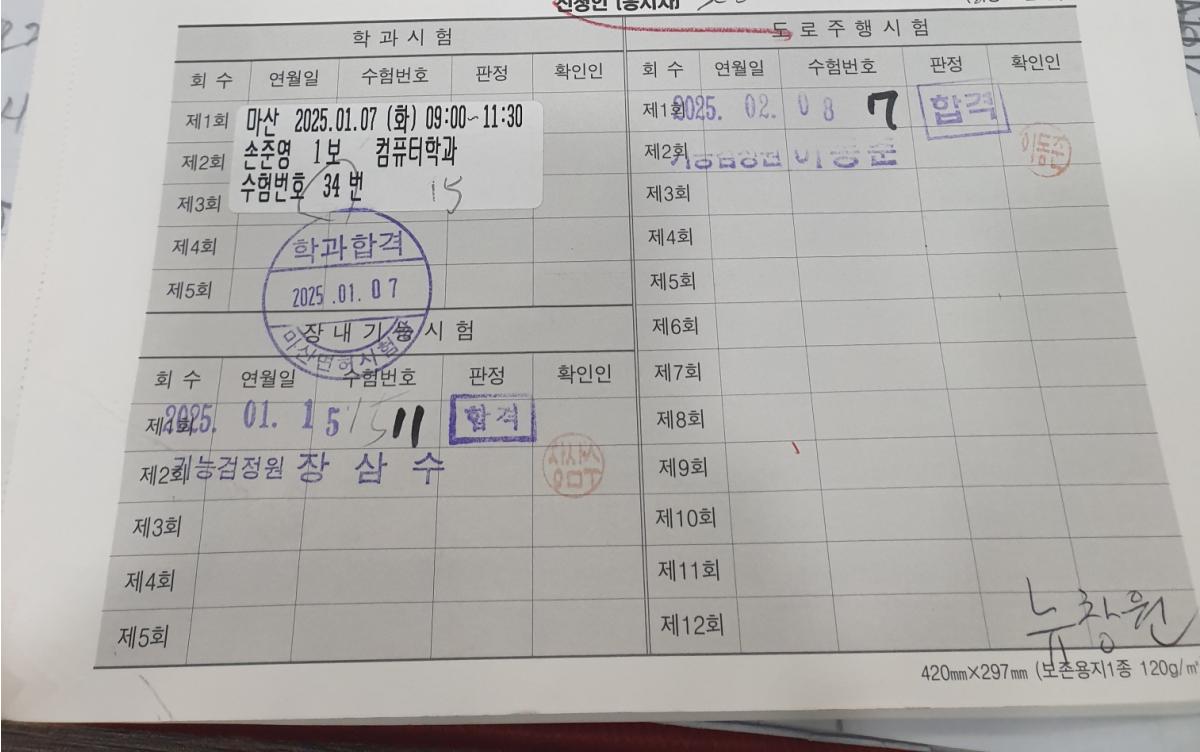 신청인 (응시자)
학 과 시 험
회 수 연월일 수험번호 판정 확인인
제1회
마산 2025.01.07 (화) 09:00~11:30
제2회
손준영 1보 컴퓨터학과
수험번호 34 번
15
제3회
제4회
학과합격
제5회
2025.01.07
마산면허시험장
장 내 기 능 시 험
회 수 연월일 수험번호 판정 확인인
제1회 2025. 01. 15 15 11 합격
제2회 기능검정원 장 삼 수
제3회
제4회
제5회
도 로 주 행 시 험
회 수 연월일 수험번호 판정 확인인
제1회 2025. 02. 08 7 합격
제2회 기능검정원 이동준
이동준
제3회
제4회
제5회
제6회
제7회
제8회
제9회
제10회
제11회
제12회
뉴창원
420mm×297mm (보존용지1종 120g/㎡